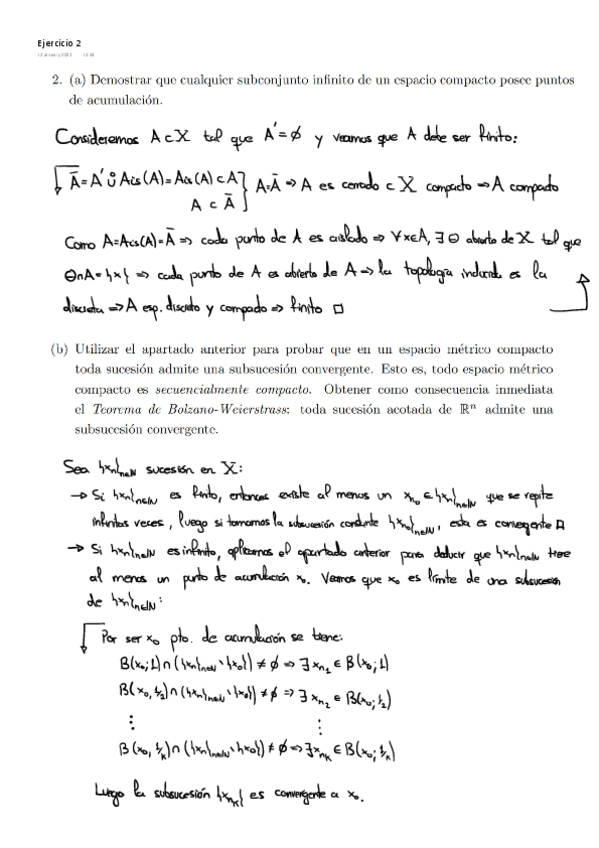 Ejercicio 2
2. (a) Demostrar que cualquier subconjunto infinito de un espacio compacto posee puntos
de acumulación.
Consideremos A⊂X tal que A'=∅ y veamos que A debe ser finito:
Ā=A'∪Ais(A)=Ais(A)⊂A } A=Ā ⇒ A es cerrado ⊂ X compacto ⇒ A compacto
A ⊂ Ā
Como A=Ais(A)=Ā ⇒ cada punto de A es aislado ⇒ ∀x∈A, ∃ Θ abierto de X tal que
Θ∩A={x} ⇒ cada punto de A es abierto de A ⇒ la topología inducida es la
discreta ⇒ A esp. discreto y compacto ⇒ finito □
(b) Utilizar el apartado anterior para probar que en un espacio métrico compacto
toda sucesión admite una subsucesión convergente. Esto es, todo espacio métrico
compacto es secuencialmente compacto. Obtener como consecuencia inmediata
el Teorema de Bolzano-Weierstrass: toda sucesión acotada de ℝⁿ admite una
subsucesión convergente.
Sea {xn}n∈ℕ sucesión en X:
→ Si {xn}n∈ℕ es finito, entonces existe al menos un xn₀ ∈ {xn}n∈ℕ que se repite
infinitas veces, luego si tomamos la subsucesión constante {xn₀}n∈ℕ, esta es convergente □
→ Si {xn}n∈ℕ es infinito, aplicamos el apartado anterior para deducir que {xn}n∈ℕ tiene
al menos un punto de acumulación x₀. Veamos que x₀ es límite de una subsucesión
de {xn}n∈ℕ:
Por ser x₀ pto. de acumulación se tiene:
B(x₀;1)∩({xn}n∈ℕ\{x₀}) ≠ ∅ ⇒ ∃ xn₁ ∈ B(x₀;1)
B(x₀,1/2)∩({xn}n∈ℕ\{x₀}) ≠ ∅ ⇒ ∃ xn₂ ∈ B(x₀;1/2)
⋮ ⋮
B(x₀,1/k)∩({xn}n∈ℕ\{x₀}) ≠ ∅ ⇒ ∃ xnₖ ∈ B(x₀;1/k)
Luego la subsucesión {xnₖ} es convergente a x₀.